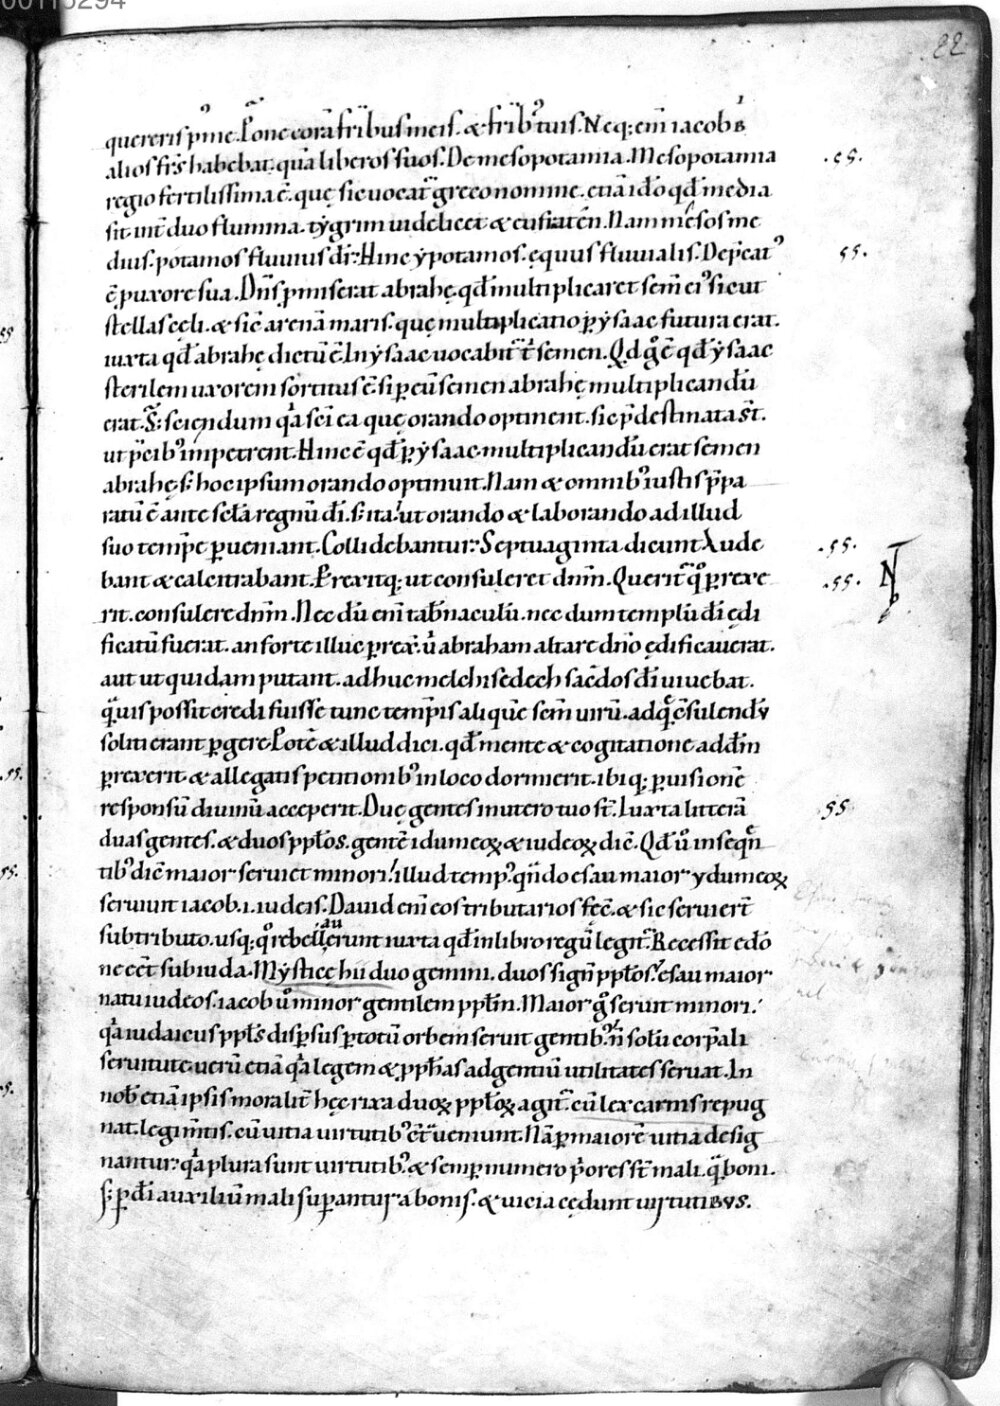 00115294
22
quereris p̄me. Pone corā fr̄ibus meis. & fr̄ib᾿ tuis. Neq; em̄ iacob
alios fr̄s habebat. quā liberos suos. De mesopotamia. Mesopotamia .55.
regio fertilissima ē. quę sic vocat᾿ greco nomine. etiā idō qđ media
sit int̄ duo flumina. tẏgrim uidelicet & eufraten. Nam mesos me
dius. potamos fluuius dr̄. Hinc ẏpotamos. equus fluuialis. Dep̄cat᾿ 55.
ē ꝑ uxore sua. Dn̄s ꝓmiserat abrahę. qđ multiplicaret sem̄ ei᾿ sicut
stellas cęli. & sic̄ arenā maris. quę multiplicatio ꝑ ẏsaac futura erat.
iuxta qđ abrahę dictū ē. In ẏsaac uocabit᾿ t᾿ semen. Qd g̊ ē qđ ẏsaac
sterilem uxorem sortitus ē. si ꝑ eū semen abrahę multiplicandū
erat. S; sciendum qa sc̄i ea quę orando optinent. sic p̄destinata st̄.
ut p̄cib᾿ impetrent. Hinc ē qđ ꝑ ẏsaac multiplicandū erat semen
abrahę. s; hoc ipsum orando optinuit. Nam & omnib᾿ iustis p̄pa
ratū ē ante scl̄a regnū dī. s; ita. ut orando & laborando ad illud
suo temp̄e ꝑueniant. Collidebantur. Septuaginta dicunt Λude .55.
bant & calcitrabant. Prexitq; ut consuleret dn̄m. Querit᾿ qͦ ꝑrexe .55. N
rit. consulere dn̄m. Nec dū em̄ tab̄naculū. nec dum templū dī ędi
ficatū fuerat. an forte illuc ꝑrex̄. ů abraham altare dn̄o ędificauerat.
aut ut quidam putant. adhuc melchisedech sac̄dos dī uiuebat.
qͣuis possit credi fuisse tunc temp̄is aliquē sem̄ uirū. ad quē c̄sulendū
soliti erant ꝑgere. Potē & illud dici. qđ mente & cogitatione ad dm̄
ꝑrexerit. & allegatis petitionib᾿ in loco dormierit. ibiq; ꝑ uisionē
responsū diuinū acceperit. Duę gentes in utero tuo st̄. Iuxta litterā 55
duas gentes. & duos pp̄los. gentē idumeoꝝ & iudeoꝝ dic̄. Qđ ů in seqn̄
tib᾿ dic̄ maior seruiet minori. illud temp᾿ qn̄do esau maior ydumeoꝝ
seruiuit iacob .i. iudeis. Dauid em̄ eos tributarios fec̄. & sic seruier̄t
sub tributo. usq; qͦ rebellauerunt iuxta qđ in libro regū legit᾿. Recessit edō
ne eēt sub iuda. Mẏsticę hii duo gemini. duos sign̄ pp̄los. esau maior
natu iudeos. iacob ů minor gentilem pp̄lm. Maior g̊ seruit minori.
qa iudaicus pp̄ls disꝑsus ꝑ totū orbem seruit gentib᾿. n̄ solū corp̄ali
seruitute. uerū etiā qa legem & ꝓph̄as ad gentiū utilitates seruat. In
nob᾿ etiā ipsis moralit̄ hęc rixa duoꝝ pp̄loꝝ agit᾿. cū lex carnis repug
nat legi m̄tis. cū uitia uirtutib᾿ c̄t᾿ueniunt. Nā ꝑ maiorē uitia desig
nantur. qa plura sunt uirtutib᾿. & semꝑ numero p̄ores st̄ mali. qͣ boni.
S; ꝑ dī auxiliū mali suꝑantur a bonis. & uicia cedunt uirtutibus.